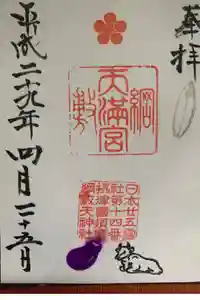 奉拝
綱敷
天満宮
日本廿五
社第十四番
摂津國須磨
綱敷天神社
平成二十九年四月二十五日